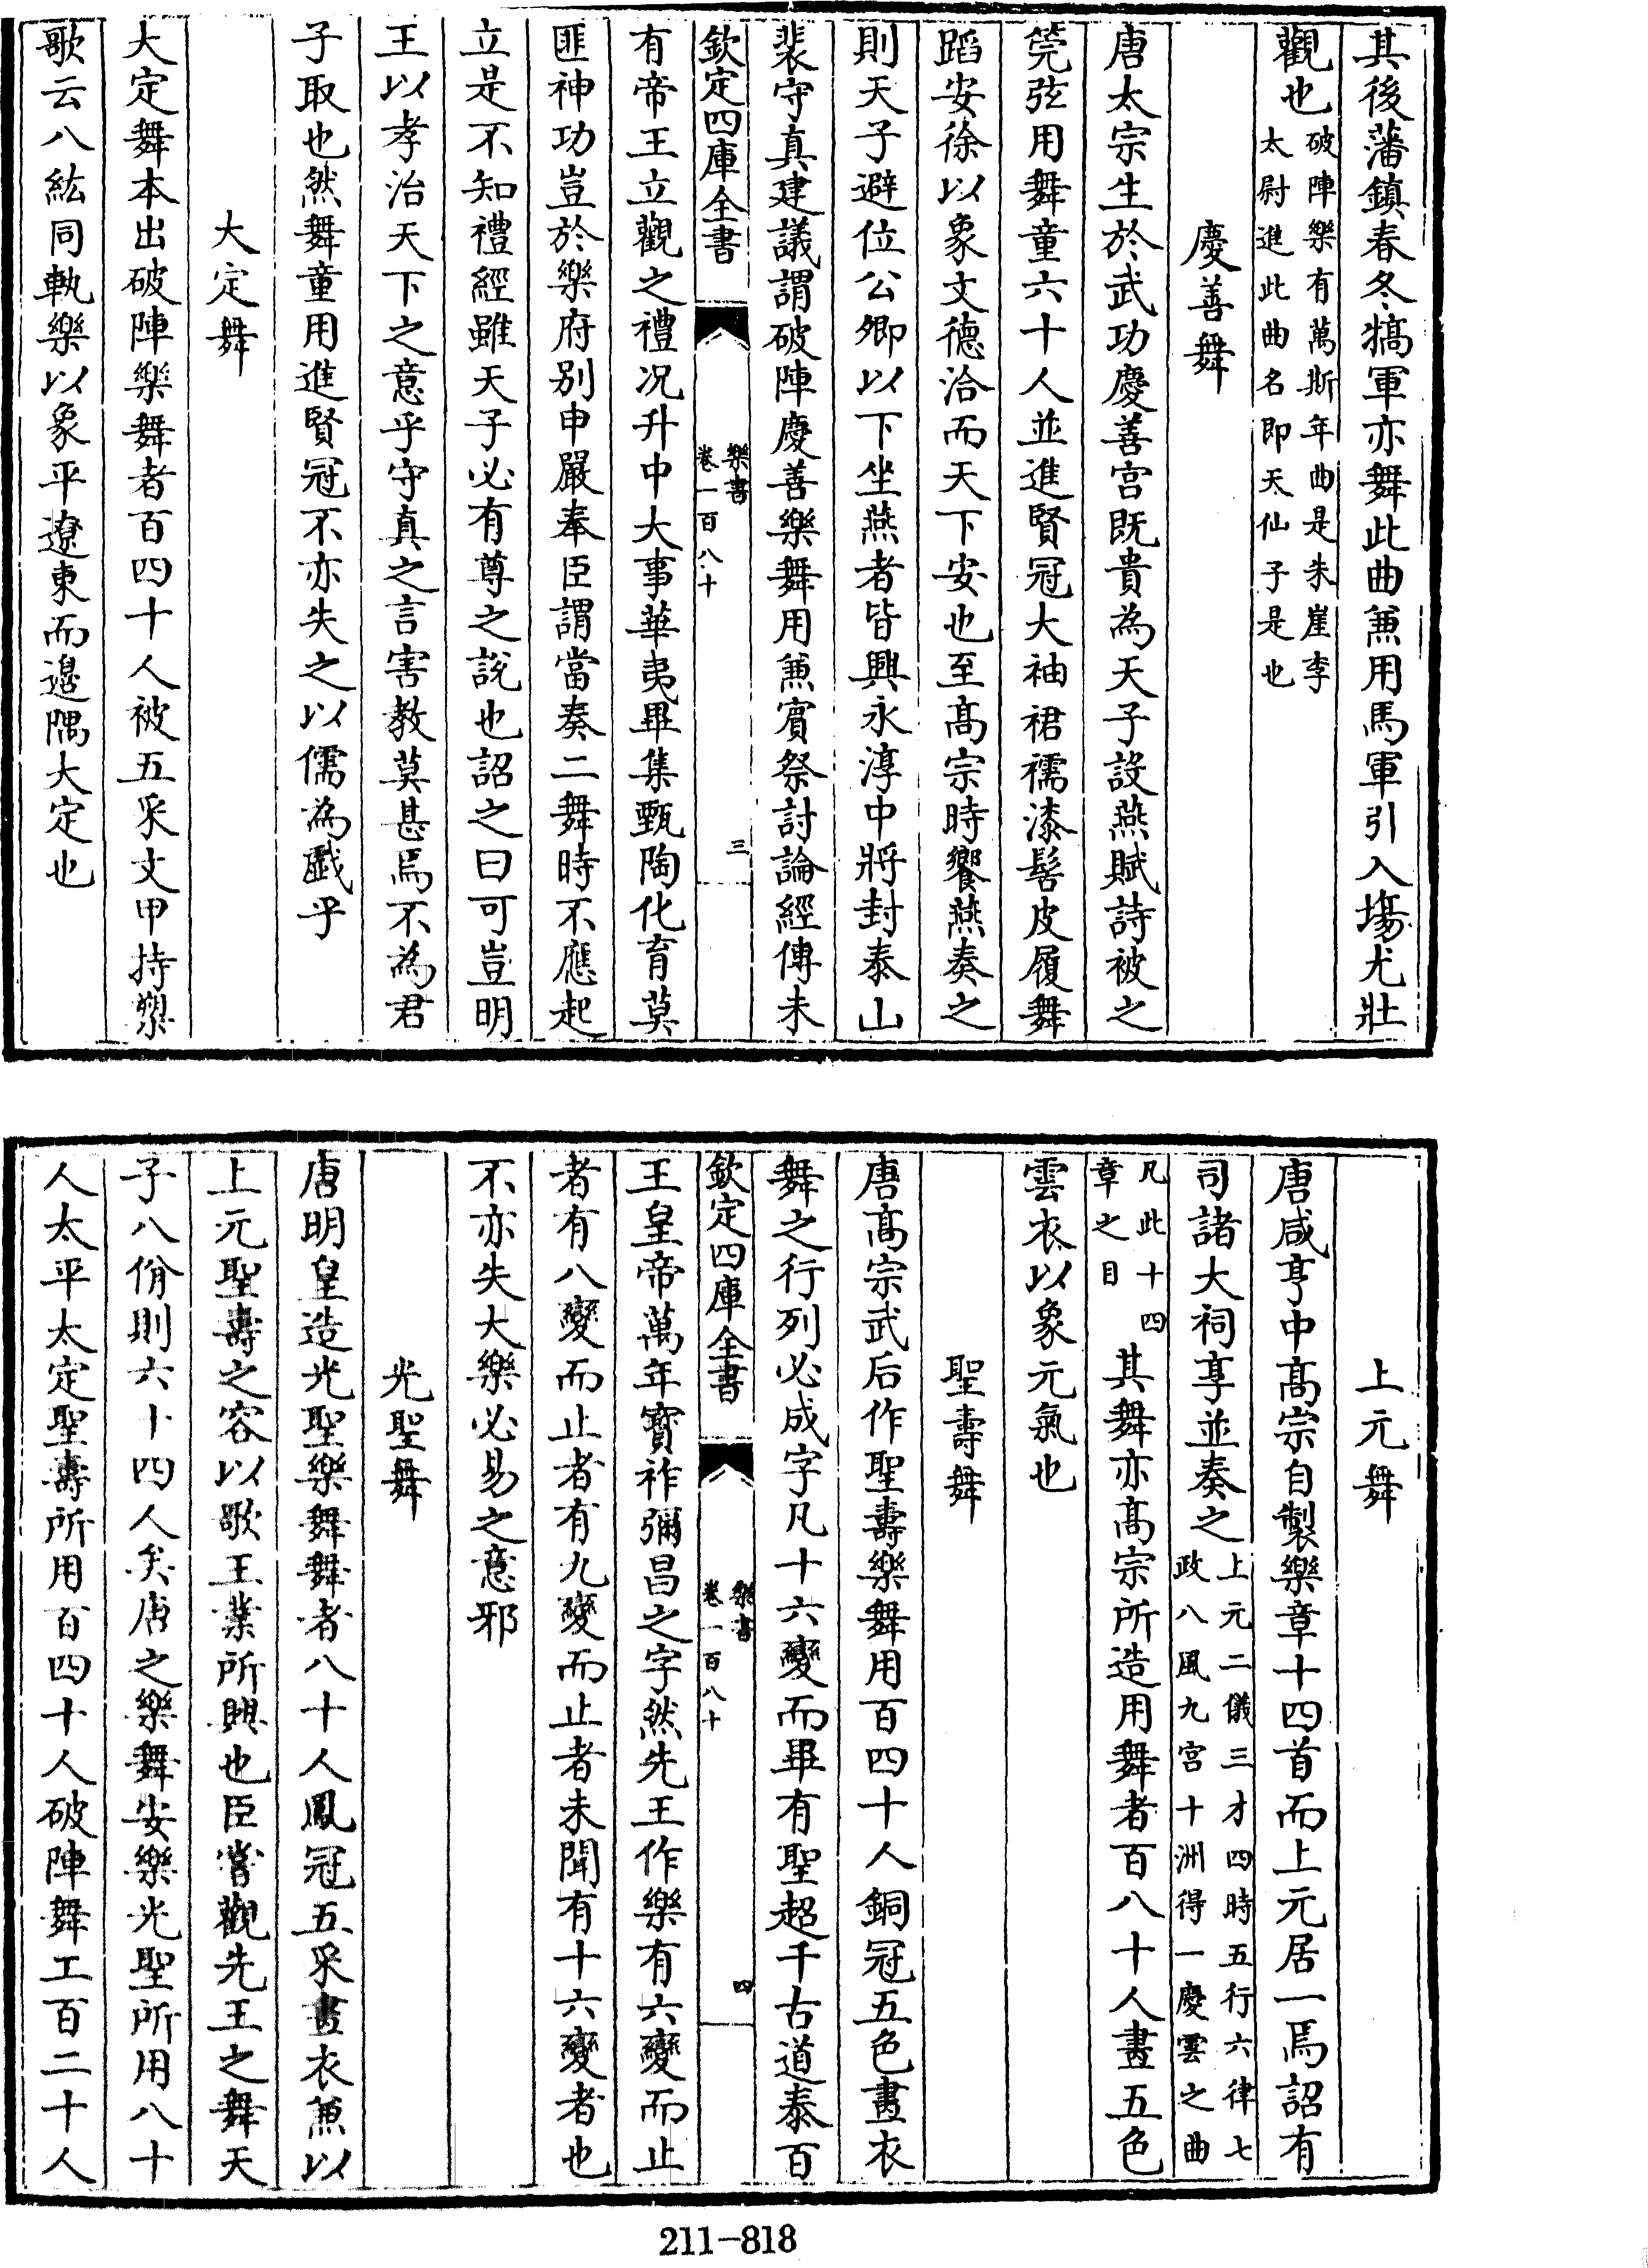 其後藩鎮春冬犒軍亦舞此曲兼用馬軍引入場尤壯
觀也破陣樂有萬斯年曲是朱崖李
太尉進此曲名即天仙子是也
慶善舞
唐太宗生於武功慶善宮既貴為天子設燕賦詩被之
筦弦用舞童六十人並進賢冠大袖裙襦漆髻皮履舞
蹈安徐以象文德洽而天下安也至髙宗時饗燕奏之
則天子避位公卿以下坐燕者皆興永淳中將封泰山
裴守真建議謂破陣慶善樂舞用兼賓祭討論經傳未
欽定四庫全書
樂書
卷一百八十
三
有帝王立觀之禮况升中大事華夷畢集甄陶化育莫
匪神功豈於樂府别申嚴奉臣謂當奏二舞時不應起
立是不知禮經雖天子必有尊之說也詔之曰可豈明
王以孝治天下之意乎守真之言害教莫甚焉不為君
子取也然舞童用進賢冠不亦失之以儒為戲乎
大定舞
大定舞本出破陣樂舞者百四十人被五采文甲持槊
歌云八紘同軌樂以象平遼東而邊隅大定也
上元舞
唐咸亨中髙宗自製樂章十四首而上元居一焉詔有
司諸大祠享並奏之上元二儀三才四時五行六律七
政八風九宮十洲得一慶雲之曲
凡此十四
章之目其舞亦髙宗所造用舞者百八十人畫五色
雲衣以象元氣也
聖壽舞
唐髙宗武后作聖壽樂舞用百四十人銅冠五色畫衣
舞之行列必成字凡十六變而畢有聖超千古道泰百
欽定四庫全書
樂書
卷一百八十
四
王皇帝萬年寳祚彌昌之字然先王作樂有六變而止
者有八變而止者有九變而止者未聞有十六變者也
不亦失大樂必易之意邪
光聖舞
唐明皇造光聖樂舞舞者八十人鳳冠五采畫衣兼以
上元聖壽之容以歌王業所興也臣嘗觀先王之舞天
子八佾則六十四人矣唐之樂舞安樂光聖所用八十
人太平太定聖壽所用百四十人破陣舞工百二十人
211-818